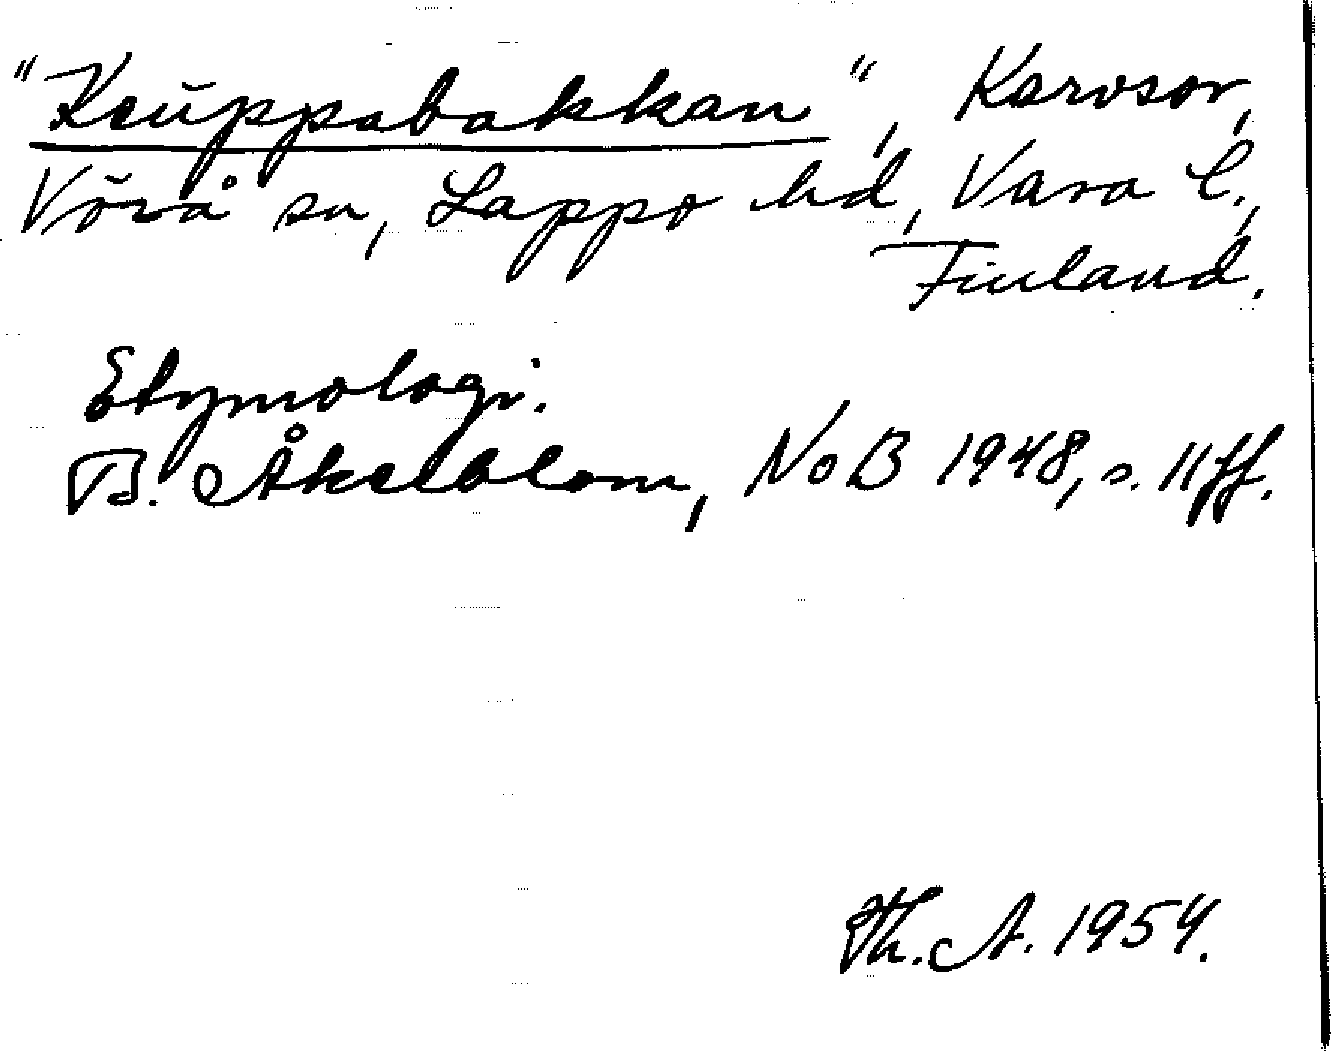 "Keuppabakkan", Karvsor,
Vörå sn, Lappo hd, Vasa l.,
Finland.
Etymologi.
B. Åkerblom, NoB 1948, s. 11 ff.
Th. A. 1954.